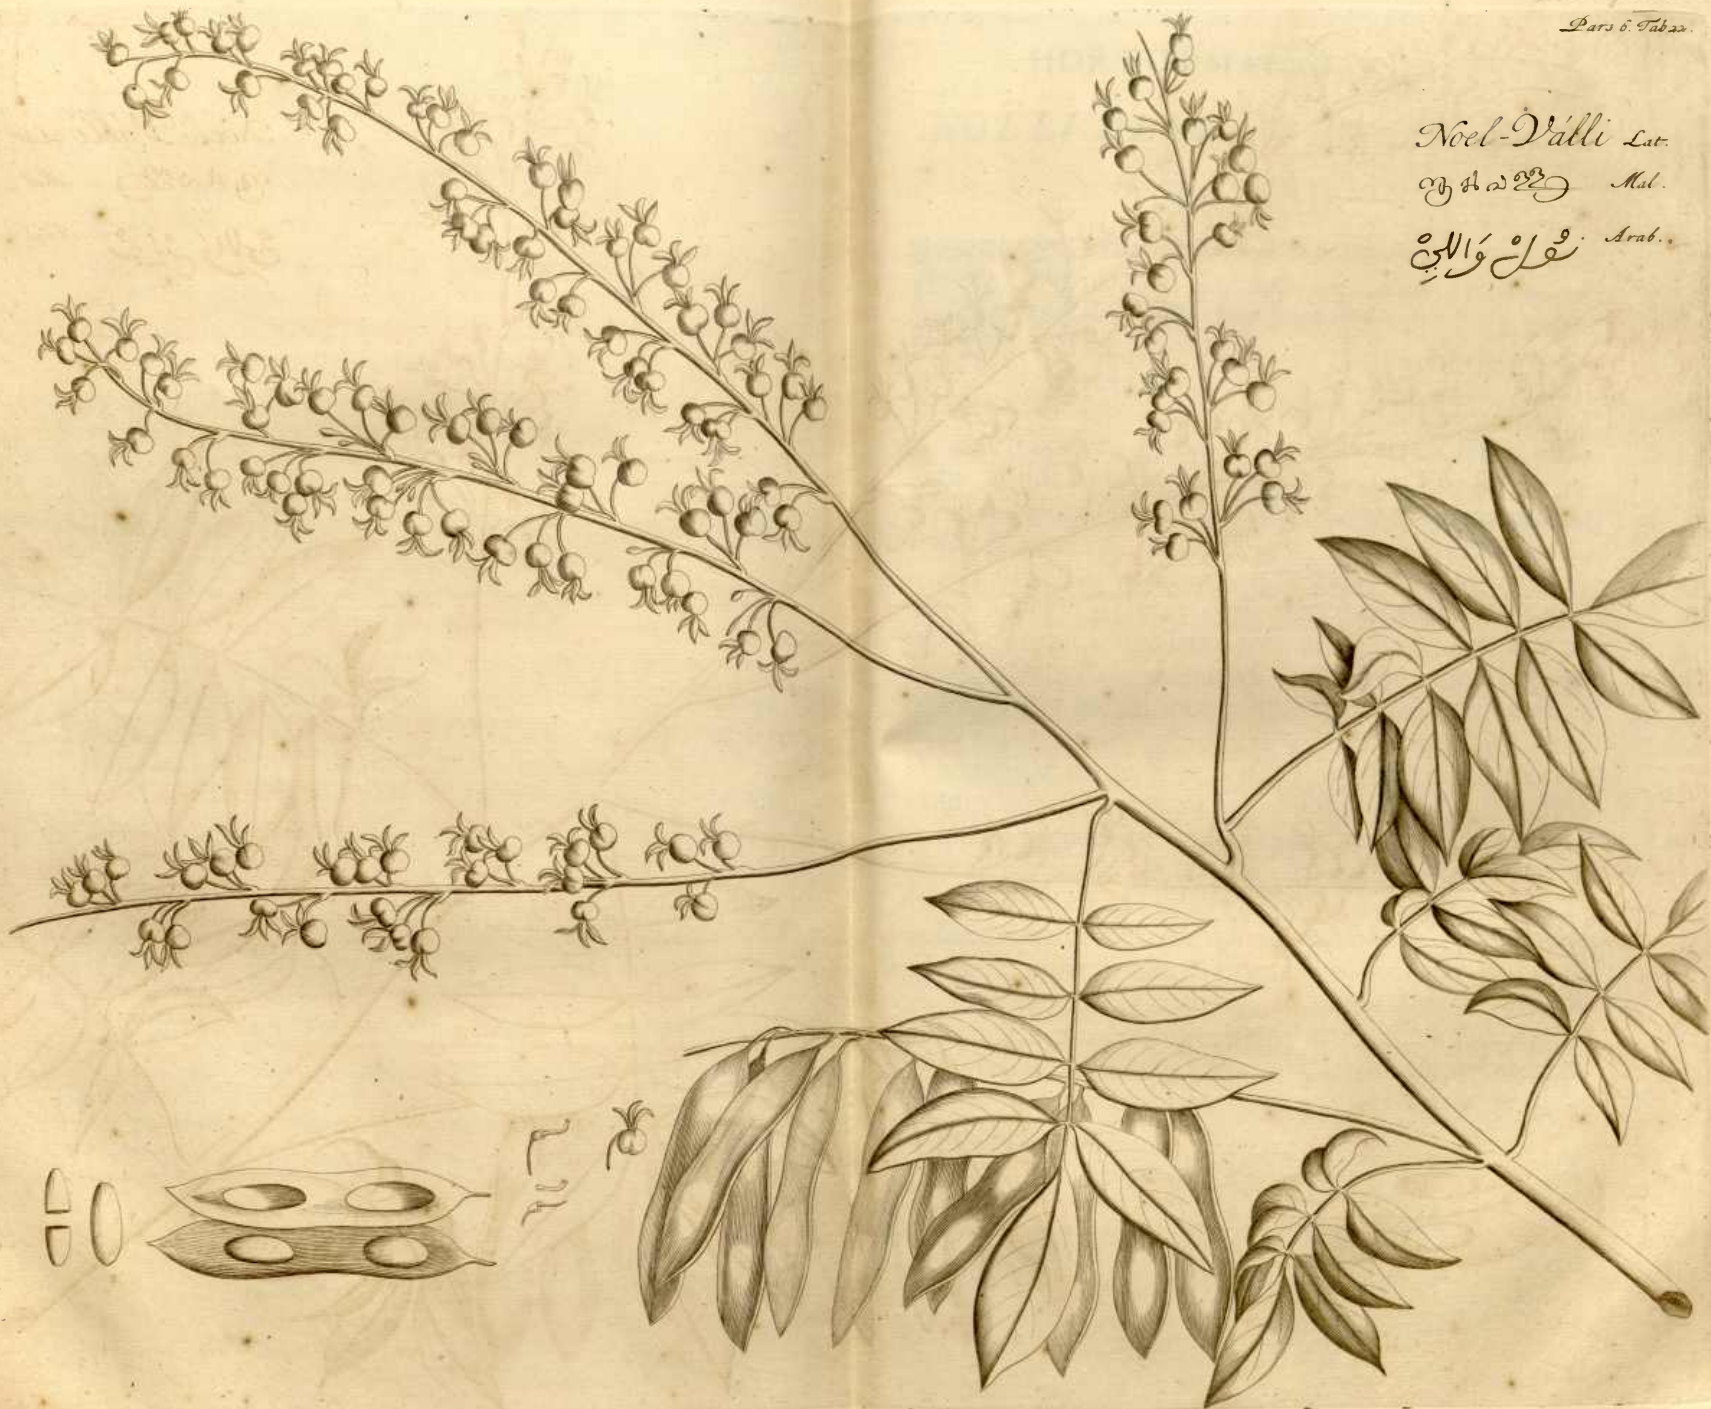 Pars 6. Tab 22.
Noel-Válli Lat.
Mal.
نُولْ وَاللِيْ Arab.